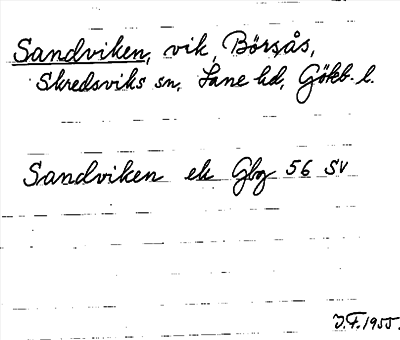 Sandviken, vik, Börsås,
Skredsviks sn, Lane hd, Gökb. l.
Sandviken ek Gbg 56 SV
J.F. 1955.